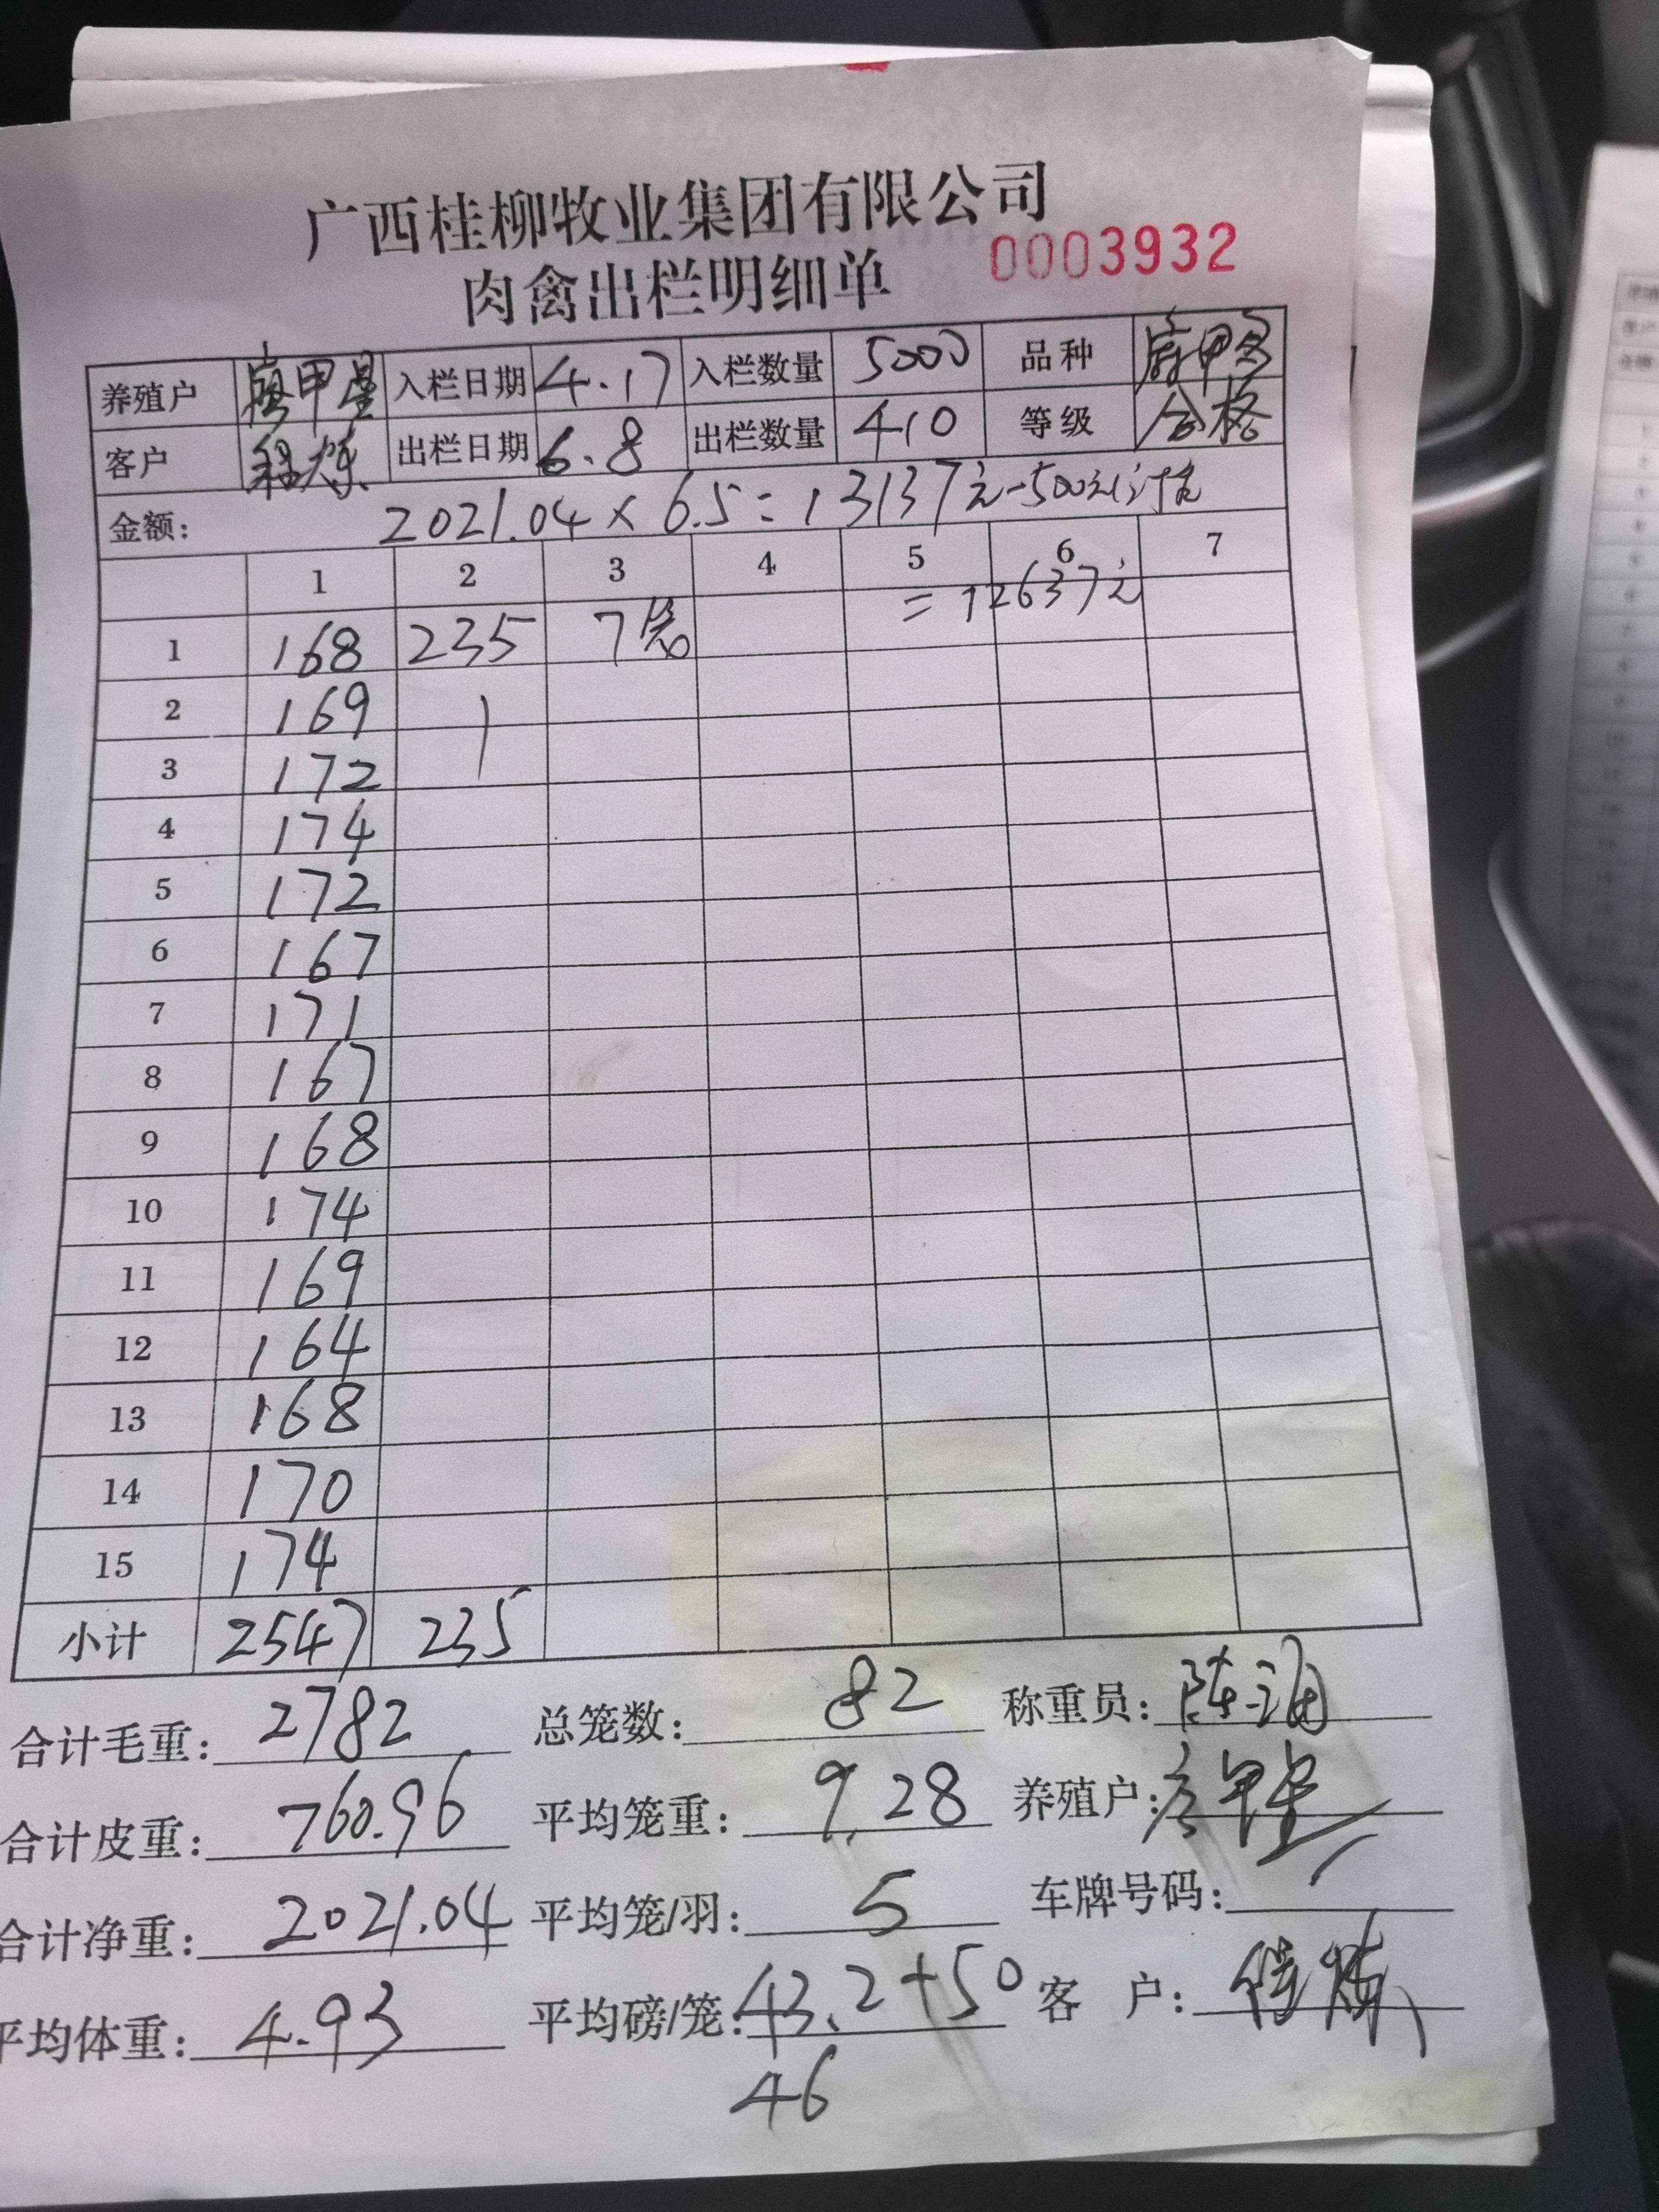 广西桂柳牧业集团有限公司
肉禽出栏明细单 0003932
养殖户 廖甲星 入栏日期 4.17 入栏数量 5000 品种
客户 程炼 出栏日期 6.8 出栏数量 410 等级 合格
金额: 2021.04×6.5=13137元-500元订金
1 2 3 4 5 6 7
=12637元
1 168 235 7笼
2 169
3 172
4 174
5 172
6 167
7 171
8 167
9 168
10 174
11 169
12 164
13 168
14 170
15 174
小计 2547 235
合计毛重: 2782 总笼数: 82 称重员:
合计皮重: 760.96 平均笼重: 9.28 养殖户:
合计净重: 2021.04 平均笼/羽: 5 车牌号码:
平均体重: 4.93 平均磅/笼: 43.2+50 客 户:
46